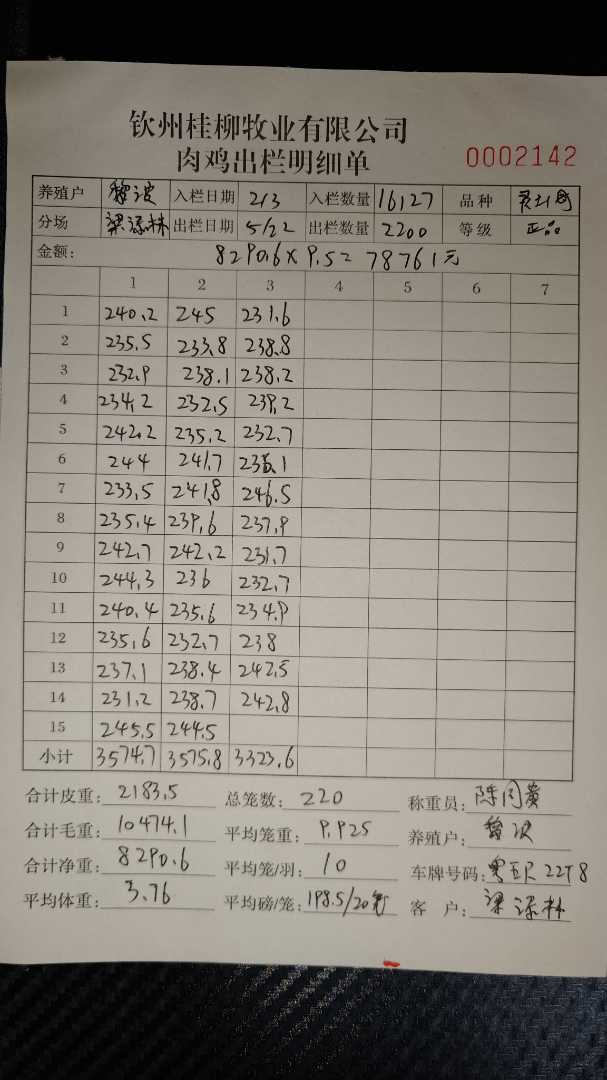 钦州桂柳牧业有限公司
肉鸡出栏明细单
0002142
养殖户 黎波 入栏日期 2/3 入栏数量 16127 品种
分场 梁添林 出栏日期 5/22 出栏数量 2200 等级 正品
金额: 8290.6×9.5= 78761元
1 2 3 4 5 6 7
1 240.2 245 231.6
2 235.5 233.8 238.8
3 232.9 238.1 238.2
4 234.2 232.5 239.2
5 242.2 235.2 232.7
6 244 241.7
7 233.5 241.8 246.5
8 235.4 239.6 237.9
9 242.7 242.2 231.7
10 244.3 236 232.7
11 240.4 235.6 234.9
12 235.6 232.7 238
13 237.1 238.4 242.5
14 231.2 238.7 242.8
15 245.5 244.5
小计 3574.7 3575.8 3323.6
合计皮重: 2183.5 总笼数: 220 称重员:
合计毛重: 10474.1 平均笼重: 9.925 养殖户: 黎波
合计净重: 8290.6 平均笼/羽: 10 车牌号码:
平均体重: 3.76 平均磅/笼: 198.5/20 客 户: 梁添林